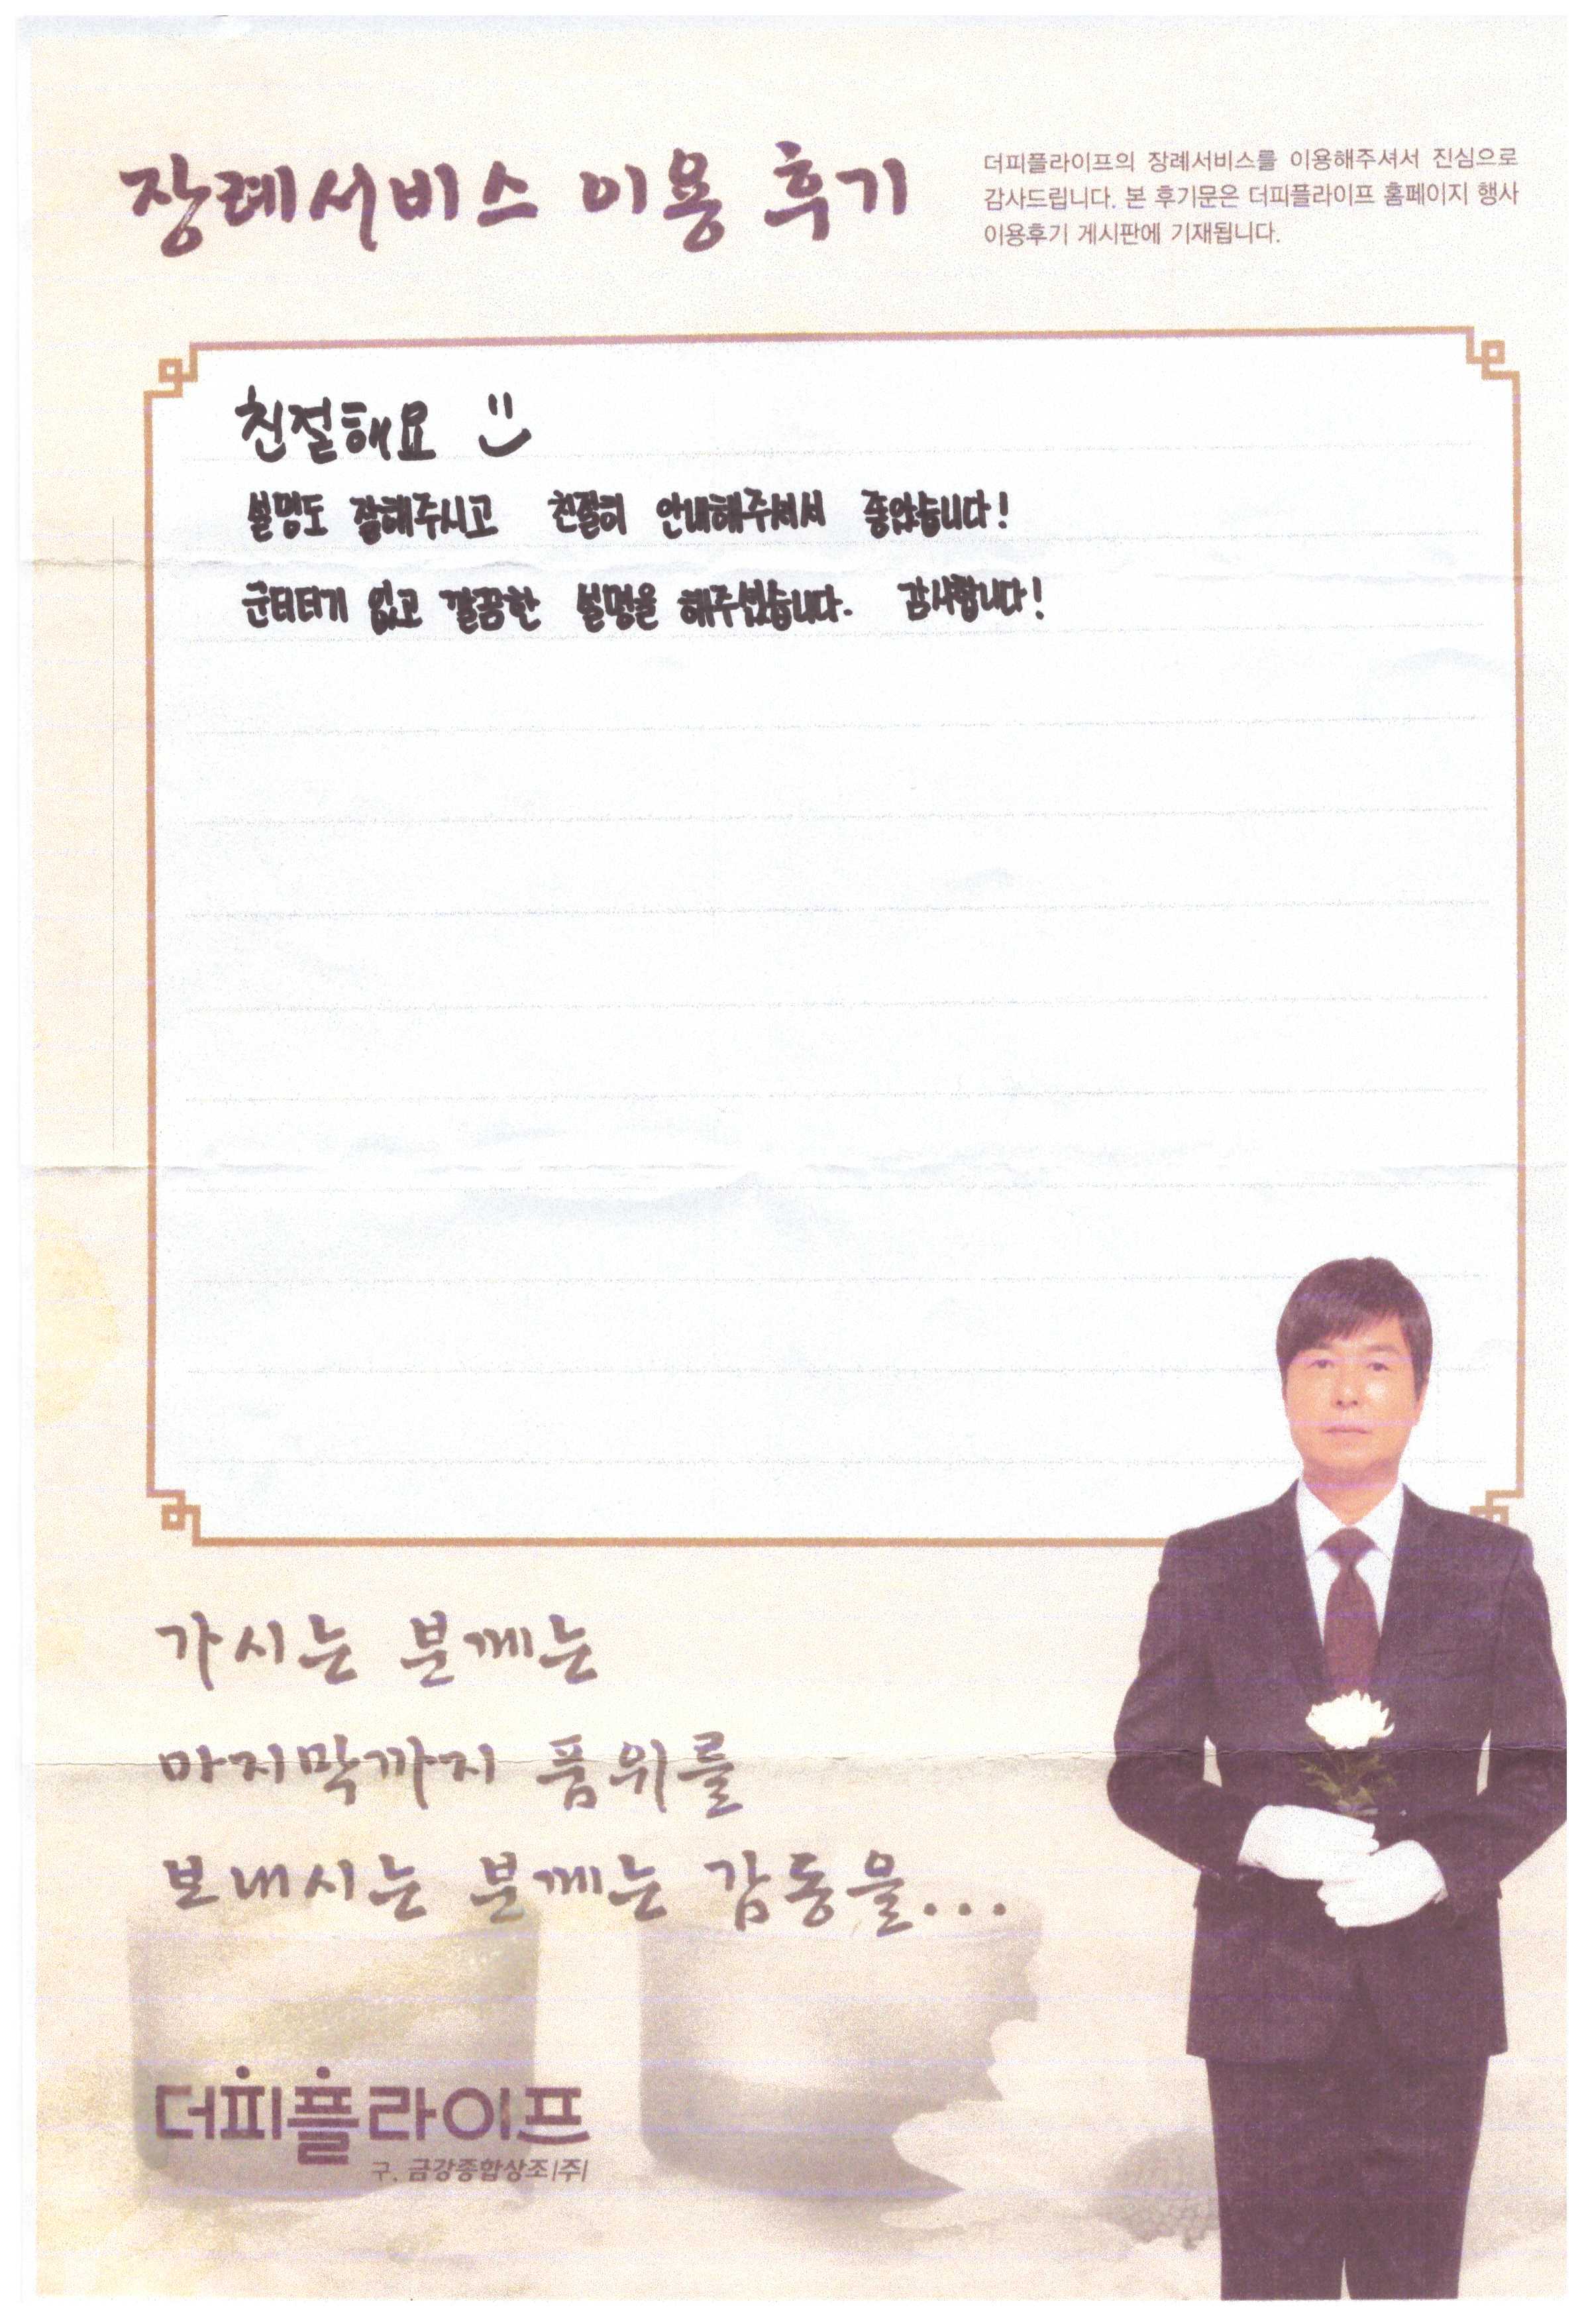 장례서비스 이용 후기
더피플라이프의 장례서비스를 이용해주셔서 진심으로
감사드립니다. 본 후기문은 더피플라이프 홈페이지 행사
이용후기 게시판에 기재됩니다.
친절해요
설명도 잘해주시고 친절히 안내해주셔서 좋았습니다!
군더더기 없고 깔끔한 설명을 해주셨습니다. 감사합니다!
가시는 분께는
마지막까지 품위를
보내시는 분께는 감동을...
더피플라이프
구. 금강종합상조|주|